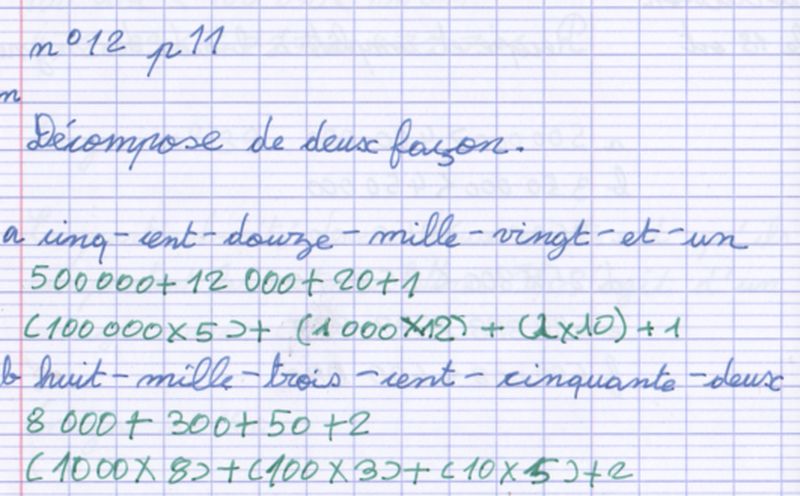 n°12 p11
n
Décompose de deux façon.
a cinq-cent-douze-mille-vingt-et-un
500 000+ 12 000+ 20+1
(100 000×5)+ (1 000×12) + (2×10) +1
b huit-mille-trois-cent-cinquante-deux
8 000+ 300+ 50 +2
(1000×8)+(100×3)+(10×5)+2